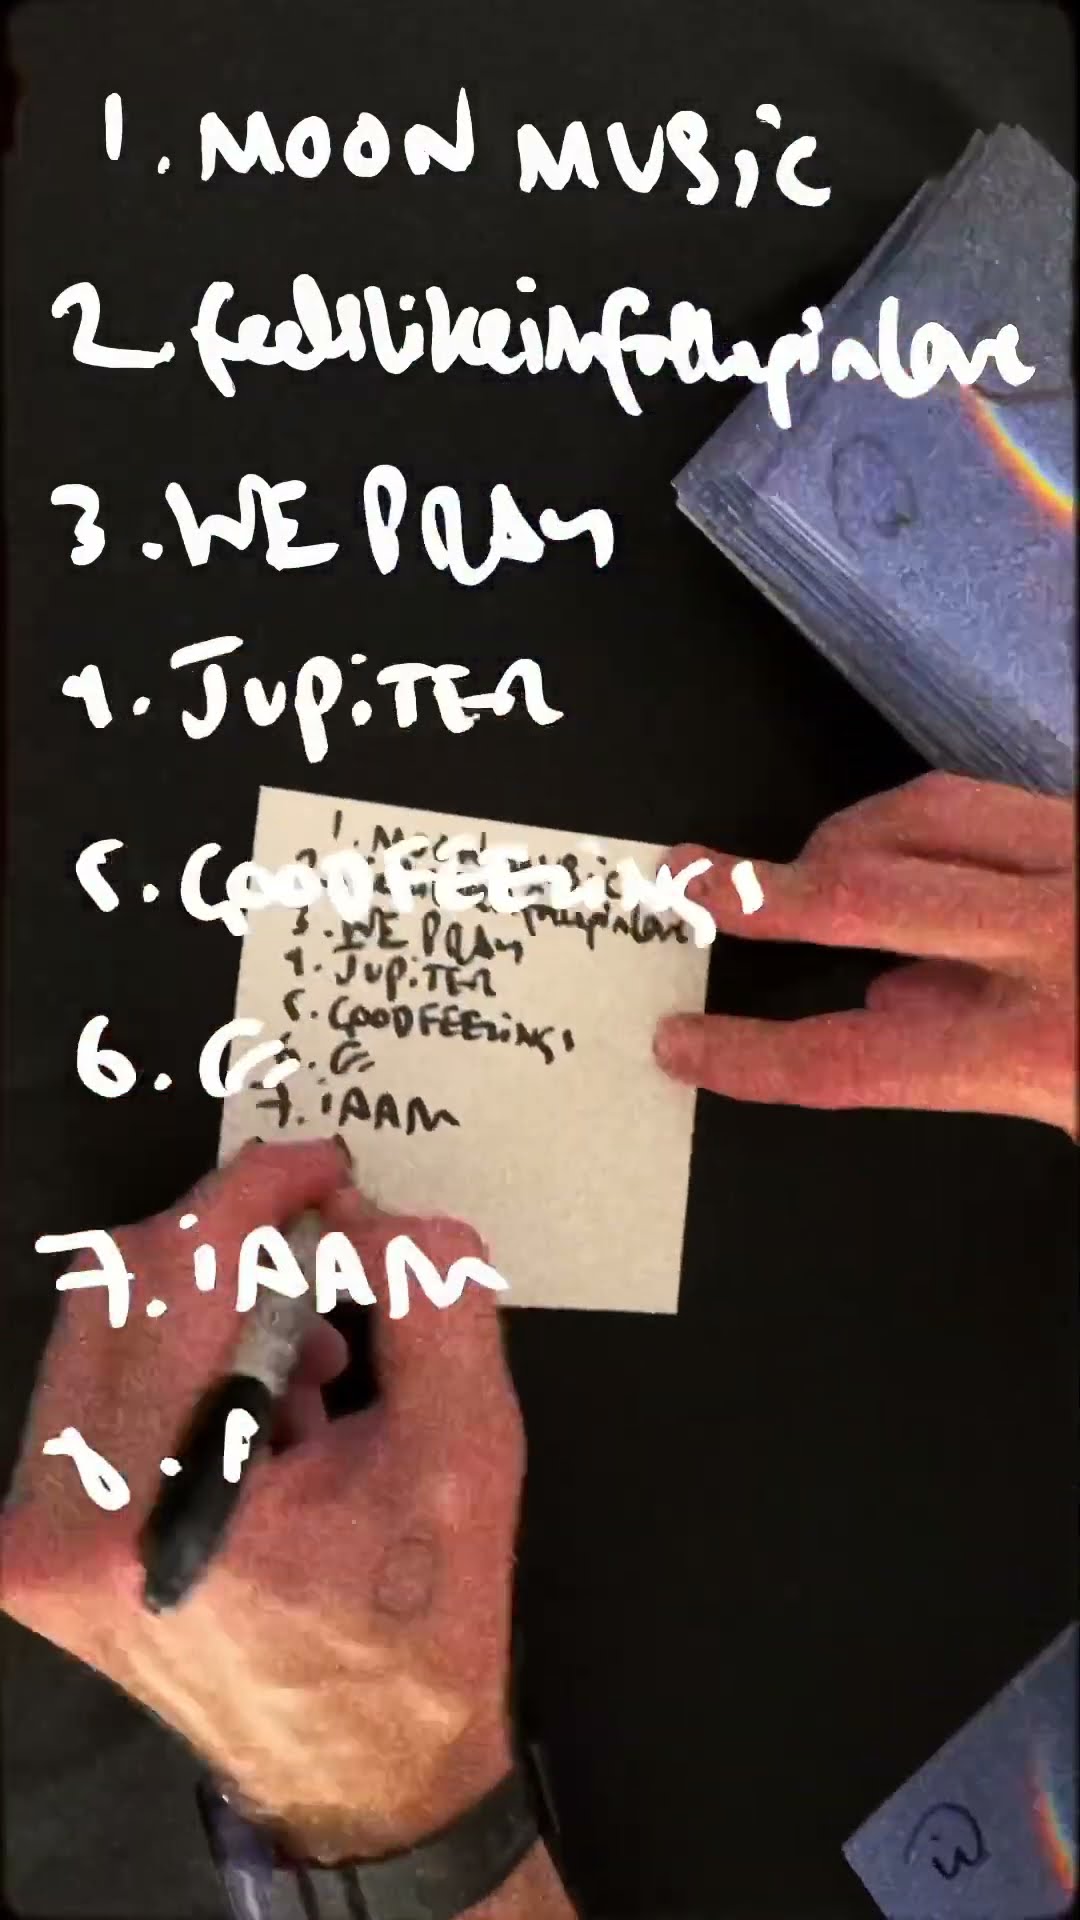 1. MOON MUSiC
2. feelslikeimfallinginlove
3. WE PRAY
4. JUPiTER
5. GOOD FEELiNGS
6.
7. iAAM
8. A
1. MOON MUSiC
2. feelslikeimfallinginlove
3. WE PRAY
4. JUPiTER
5. GOOD FEELiNGS
6.
7. iAAM